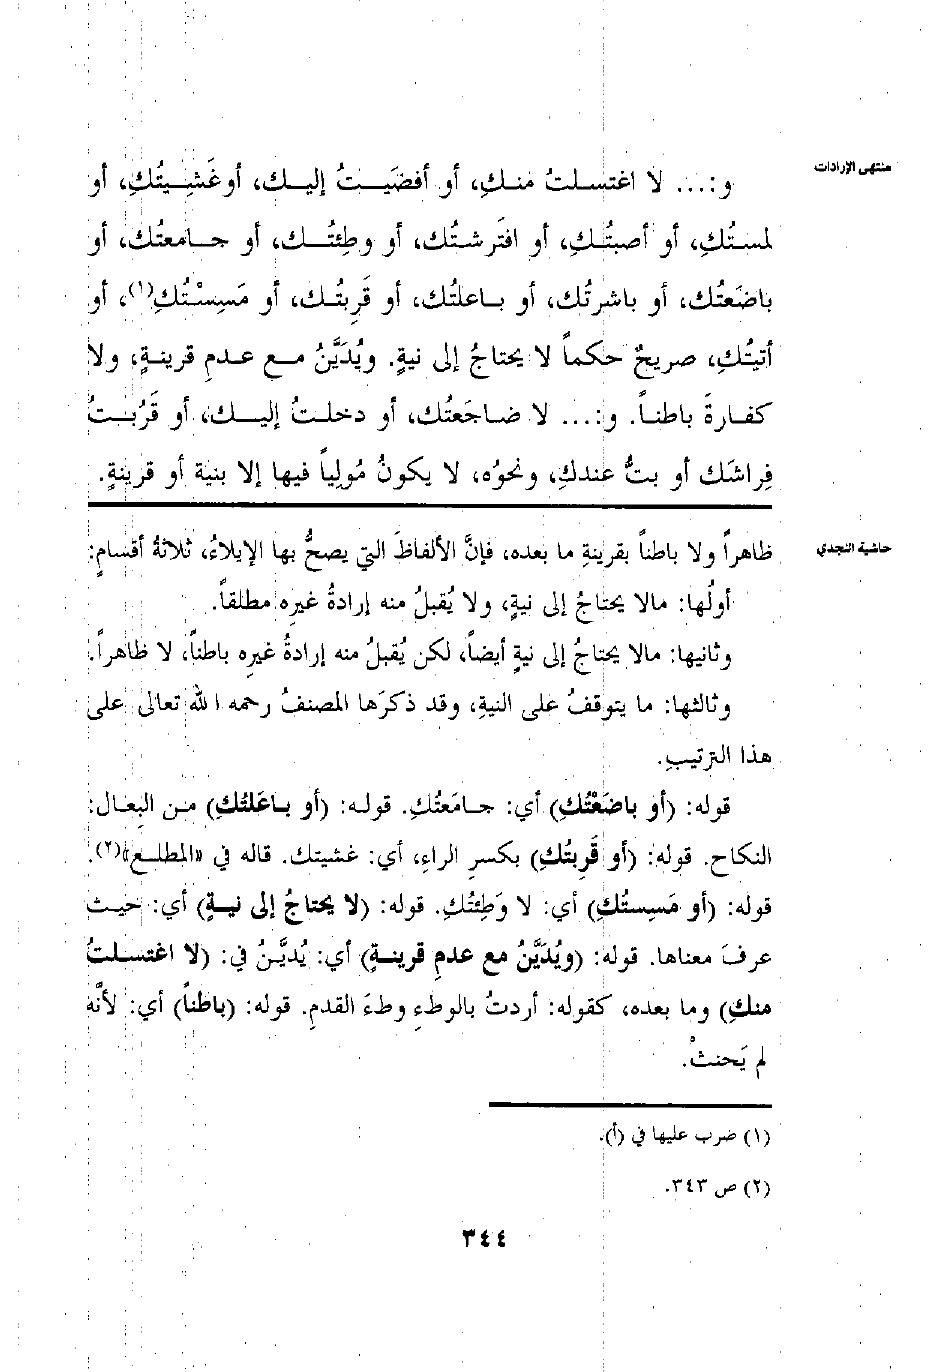 منتهى الإرادات
و:... لا اغتسلتُ منكِ، أو أفضَيتُ إليكِ، أو غَشِيتُكِ، أو
لمستُكِ، أو أصبتُكِ، أو افتَرشتُكِ، أو وطِئتُكِ، أو جامعتُك، أو
باضَعتُك، أو باشرتُك، أو باعلتُك، أو قَرِبتُك، أو مَسِسْتُكِ(١)، أو
أتيتُكِ، صريحٌ حكماً لا يحتاجُ إلى نيةٍ. ويُدَيَّنُ مع عدمِ قرينةٍ، ولا
كفارةَ باطناً. و:... لا ضاجَعتُك، أو دخلتُ إليك، أو قَرُبتُ
فِراشَك أو بتُّ عندكِ، ونحوُه، لا يكونُ مُولِياً فيها إلا بنية أو قرينةٍ.
حاشية النجدي
ظاهراً ولا باطناً بقرينةِ ما بعده، فإنَّ الألفاظَ التي يصحُّ بها الإيلاءُ، ثلاثةُ أقسامٍ:
أولُها: مالا يحتاجُ إلى نيةٍ، ولا يُقبلُ منه إرادةُ غيرِه مطلقاً.
وثانيها: مالا يحتاجُ إلى نيةٍ أيضاً، لكن يُقبلُ منه إرادةُ غيرِه باطناً، لا ظاهراً.
وثالثها: ما يتوقفُ على النيةِ، وقد ذكرَها المصنفُ رحمه الله تعالى على
هذا الترتيبِ.
قوله: (أو باضَعْتُكِ) أي: جامَعتُكِ. قوله: (أو باعَلتُكِ) من البِعال:
النكاح. قوله: (أو قَرِبتُكِ) بكسرِ الراءِ، أي: غشيتك. قاله في «المطلع»(٢).
قوله: (أو مَسِستُكِ) أي: لا وَطِئتُكِ. قوله: (لا يحتاجُ إلى نيةٍ) أي: حيث
عرفَ معناها. قوله: (ويُدَيَّنُ مع عدمِ قرينةٍ) أي: يُديَّنُ في: (لا اغتسلتُ
منكِ) وما بعده، كقوله: أردتُ بالوطءِ وطءَ القدمِ. قوله: (باطناً) أي: لأنَّه
لم يَحنثْ.
(١) ضرب عليها في (أ).
(٢) ص ٣٤٣.
٣٤٤